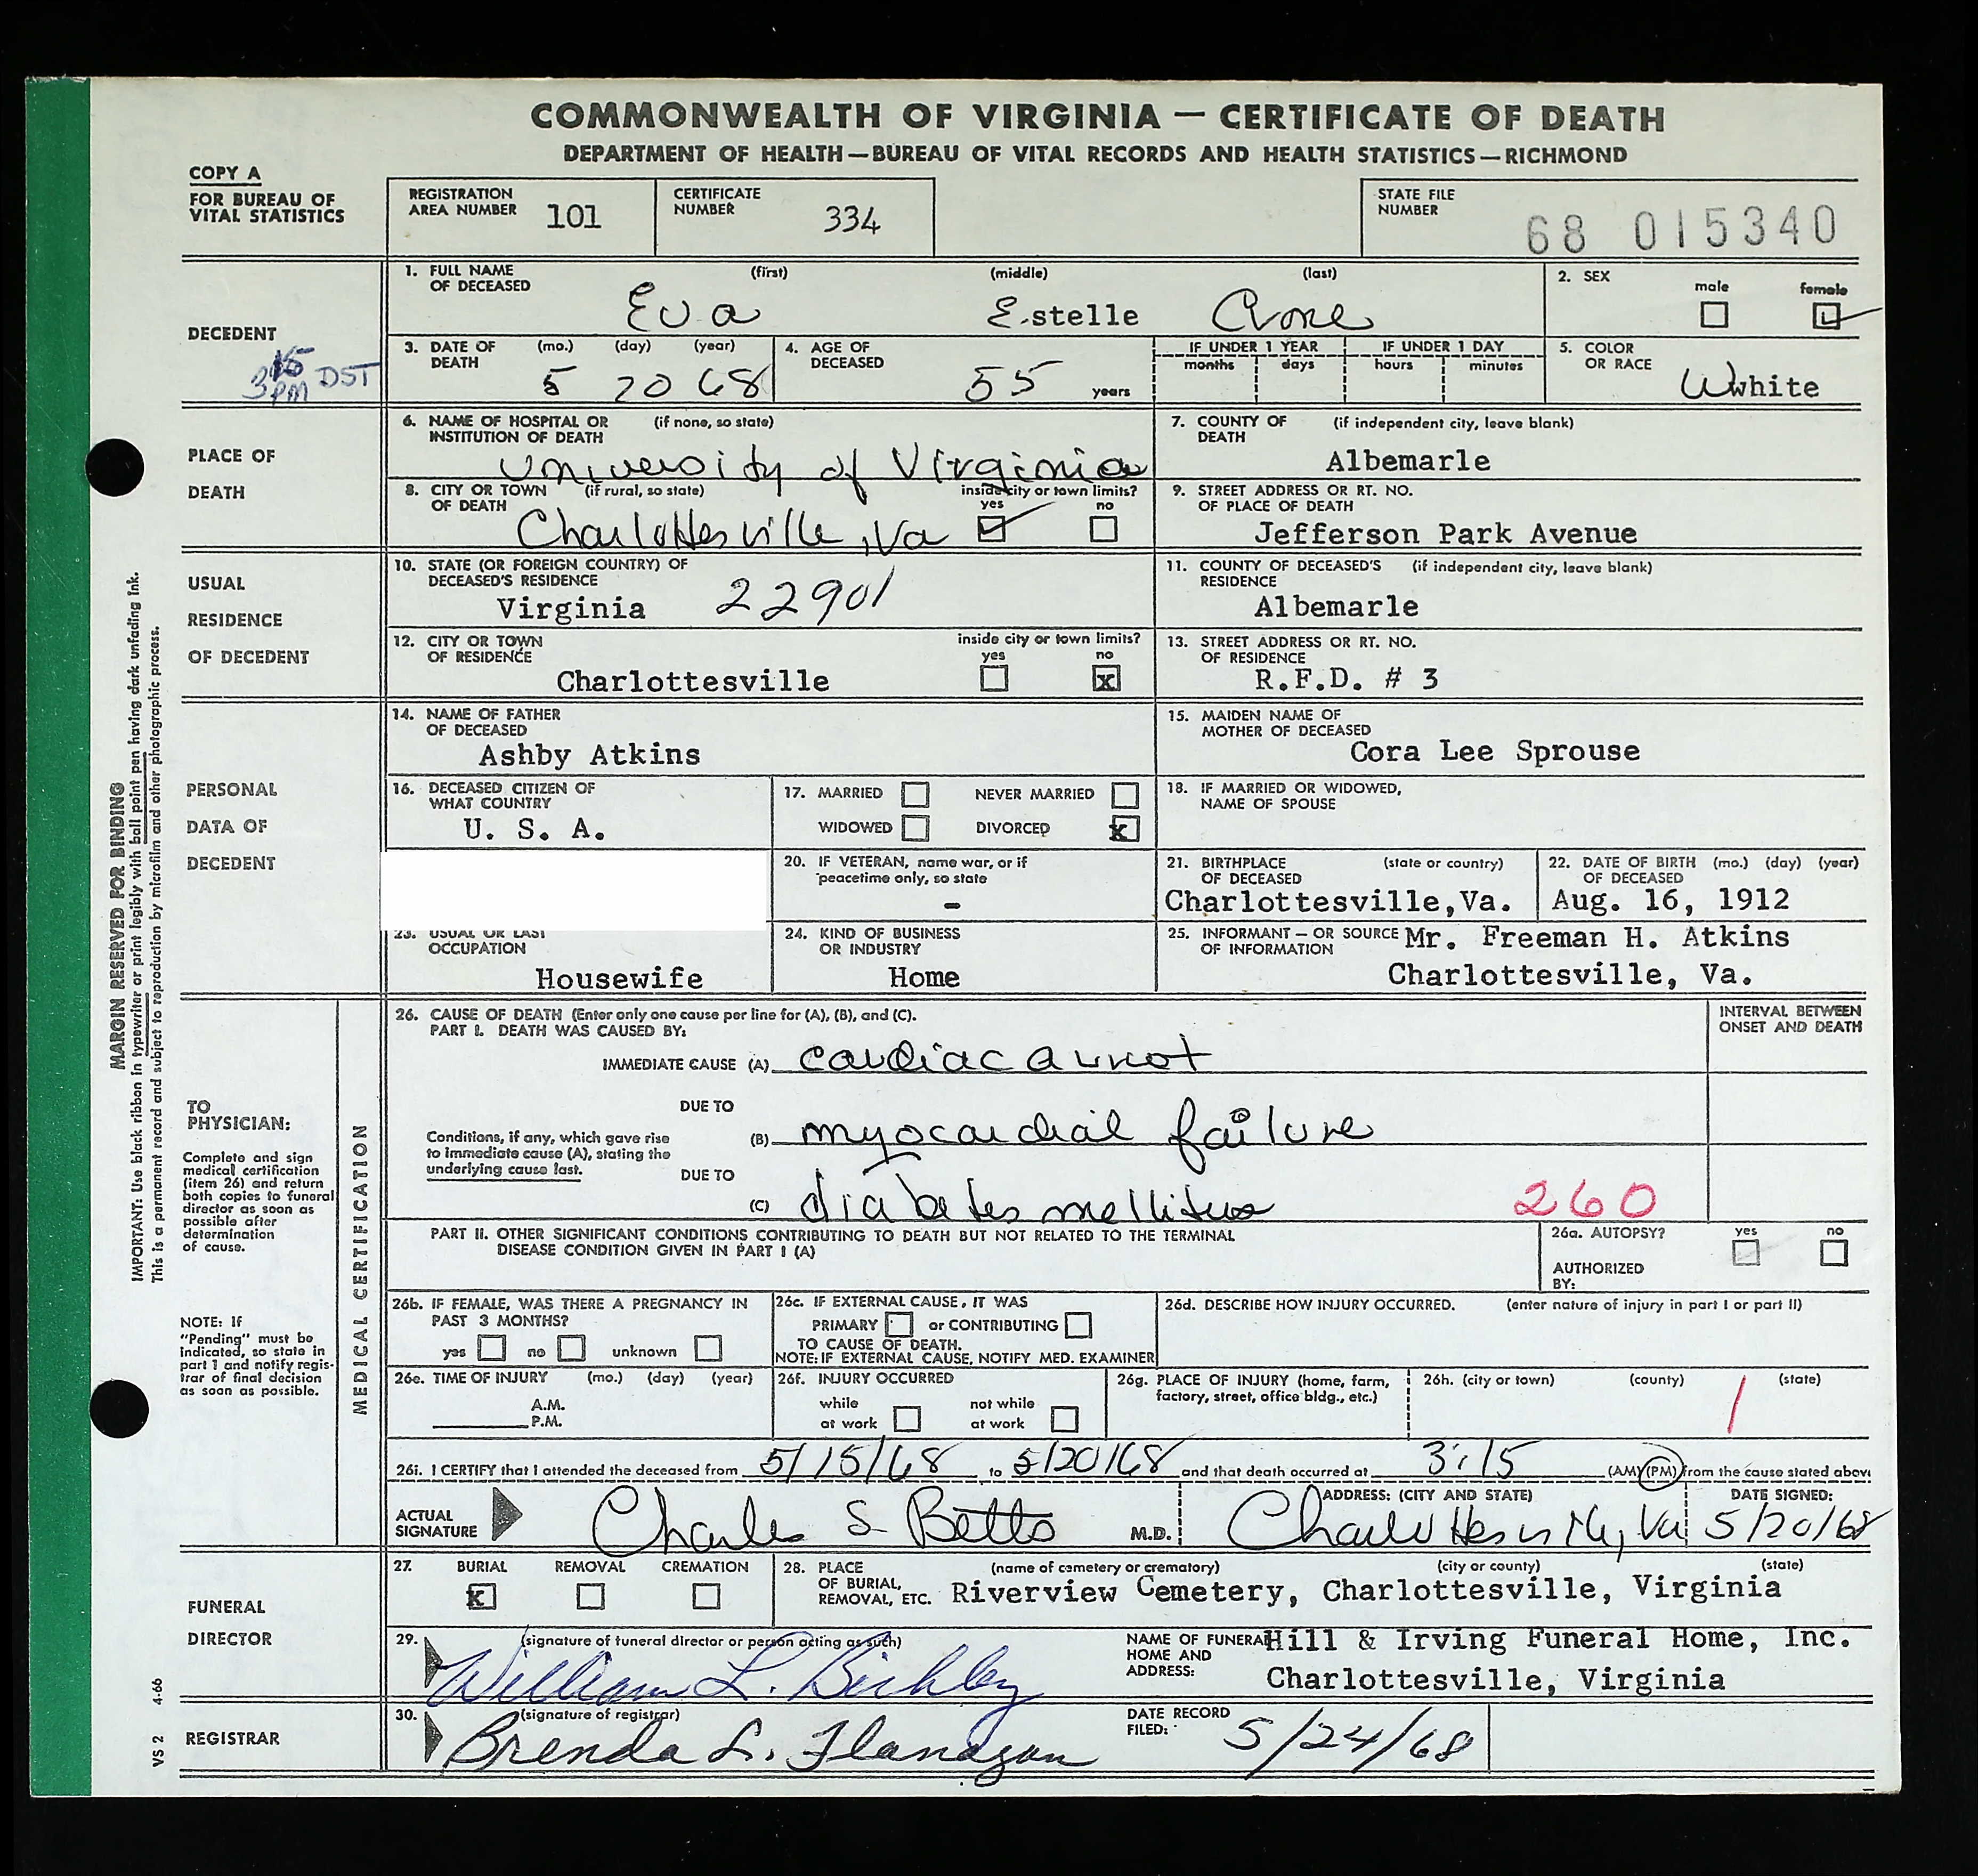 COMMONWEALTH OF VIRGINIA — CERTIFICATE OF DEATH
DEPARTMENT OF HEALTH—BUREAU OF VITAL RECORDS AND HEALTH STATISTICS—RICHMOND
COPY A
FOR BUREAU OF
VITAL STATISTICS
REGISTRATION
AREA NUMBER 101
CERTIFICATE
NUMBER 334
STATE FILE
NUMBER 68 015340
DECEDENT
3 15 PM DST
1. FULL NAME (first) (middle) (last)
OF DECEASED
Eva Estelle
2. SEX male female
3. DATE OF (mo.) (day) (year)
DEATH 5 20 68
4. AGE OF
DECEASED 55 years
IF UNDER 1 YEAR
months days
IF UNDER 1 DAY
hours minutes
5. COLOR
OR RACE Wwhite
PLACE OF
DEATH
6. NAME OF HOSPITAL OR (if none, so state)
INSTITUTION OF DEATH
University of Virginia
7. COUNTY OF (if independent city, leave blank)
DEATH
Albemarle
8. CITY OR TOWN (if rural, so state) inside city or town limits?
OF DEATH yes no
Charlottesville, Va
9. STREET ADDRESS OR RT. NO.
OF PLACE OF DEATH
Jefferson Park Avenue
USUAL
RESIDENCE
OF DECEDENT
10. STATE (OR FOREIGN COUNTRY) OF
DECEASED'S RESIDENCE
Virginia 22901
11. COUNTY OF DECEASED'S (if independent city, leave blank)
RESIDENCE
Albemarle
12. CITY OR TOWN inside city or town limits?
OF RESIDENCE yes no
Charlottesville x
13. STREET ADDRESS OR RT. NO.
OF RESIDENCE
R.F.D. # 3
PERSONAL
DATA OF
DECEDENT
14. NAME OF FATHER
OF DECEASED
Ashby Atkins
15. MAIDEN NAME OF
MOTHER OF DECEASED
Cora Lee Sprouse
16. DECEASED CITIZEN OF
WHAT COUNTRY
U. S. A.
17. MARRIED NEVER MARRIED
WIDOWED DIVORCED x
18. IF MARRIED OR WIDOWED,
NAME OF SPOUSE
20. IF VETERAN, name war, or if
peacetime only, so state
-
21. BIRTHPLACE (state or country)
OF DECEASED
Charlottesville,Va.
22. DATE OF BIRTH (mo.) (day) (year)
OF DECEASED
Aug. 16, 1912
23. USUAL OR LAST
OCCUPATION
Housewife
24. KIND OF BUSINESS
OR INDUSTRY
Home
25. INFORMANT — OR SOURCE Mr. Freeman H. Atkins
OF INFORMATION
Charlottesville, Va.
MARGIN RESERVED FOR BINDING
IMPORTANT: Use black ribbon in typewriter or print legibly with ball point pen having dark unfading ink.
This is a permanent record and subject to reproduction by microfilm and other photographic process.
TO
PHYSICIAN:
Complete and sign
medical certification
(item 26) and return
both copies to funeral
director as soon as
possible after
determination
of cause.
NOTE: If
"Pending" must be
indicated, so state in
part 1 and notify regis-
trar of final decision
as soon as possible.
MEDICAL CERTIFICATION
26. CAUSE OF DEATH (Enter only one cause per line for (A), (B), and (C).
PART I. DEATH WAS CAUSED BY:
INTERVAL BETWEEN
ONSET AND DEATH
IMMEDIATE CAUSE (A) cardiac arrest
DUE TO
Conditions, if any, which gave rise
to immediate cause (A), stating the
underlying cause last.
(B) myocardial failure
DUE TO
(C) diabetes mellitus 260
PART II. OTHER SIGNIFICANT CONDITIONS CONTRIBUTING TO DEATH BUT NOT RELATED TO THE TERMINAL
DISEASE CONDITION GIVEN IN PART I (A)
26a. AUTOPSY? yes no
AUTHORIZED
BY:
26b. IF FEMALE, WAS THERE A PREGNANCY IN
PAST 3 MONTHS?
yes no unknown
26c. IF EXTERNAL CAUSE, IT WAS
PRIMARY or CONTRIBUTING
TO CAUSE OF DEATH.
NOTE: IF EXTERNAL CAUSE, NOTIFY MED. EXAMINER
26d. DESCRIBE HOW INJURY OCCURRED. (enter nature of injury in part I or part II)
26e. TIME OF INJURY (mo.) (day) (year)
A.M.
P.M.
26f. INJURY OCCURRED
while not while
at work at work
26g. PLACE OF INJURY (home, farm,
factory, street, office bldg., etc.)
26h. (city or town) (county) (state)
1
26i. I CERTIFY that I attended the deceased from 5/15/68 to 5/20/68 and that death occurred at 3:15 (AM) (PM) from the cause stated above
ACTUAL
SIGNATURE Charles S Betts M.D.
ADDRESS: (CITY AND STATE)
Charlottesville, Va
DATE SIGNED:
5/20/68
FUNERAL
DIRECTOR
27. BURIAL REMOVAL CREMATION
x
28. PLACE (name of cemetery or crematory) (city or county) (state)
OF BURIAL,
REMOVAL, ETC. Riverview Cemetery, Charlottesville, Virginia
29. (signature of funeral director or person acting as such)
William L.
NAME OF FUNERAL Hill & Irving Funeral Home, Inc.
HOME AND
ADDRESS: Charlottesville, Virginia
REGISTRAR
30. (signature of registrar)
Brenda L. Flanagan
DATE RECORD
FILED: 5/24/68
VS 2 4-66